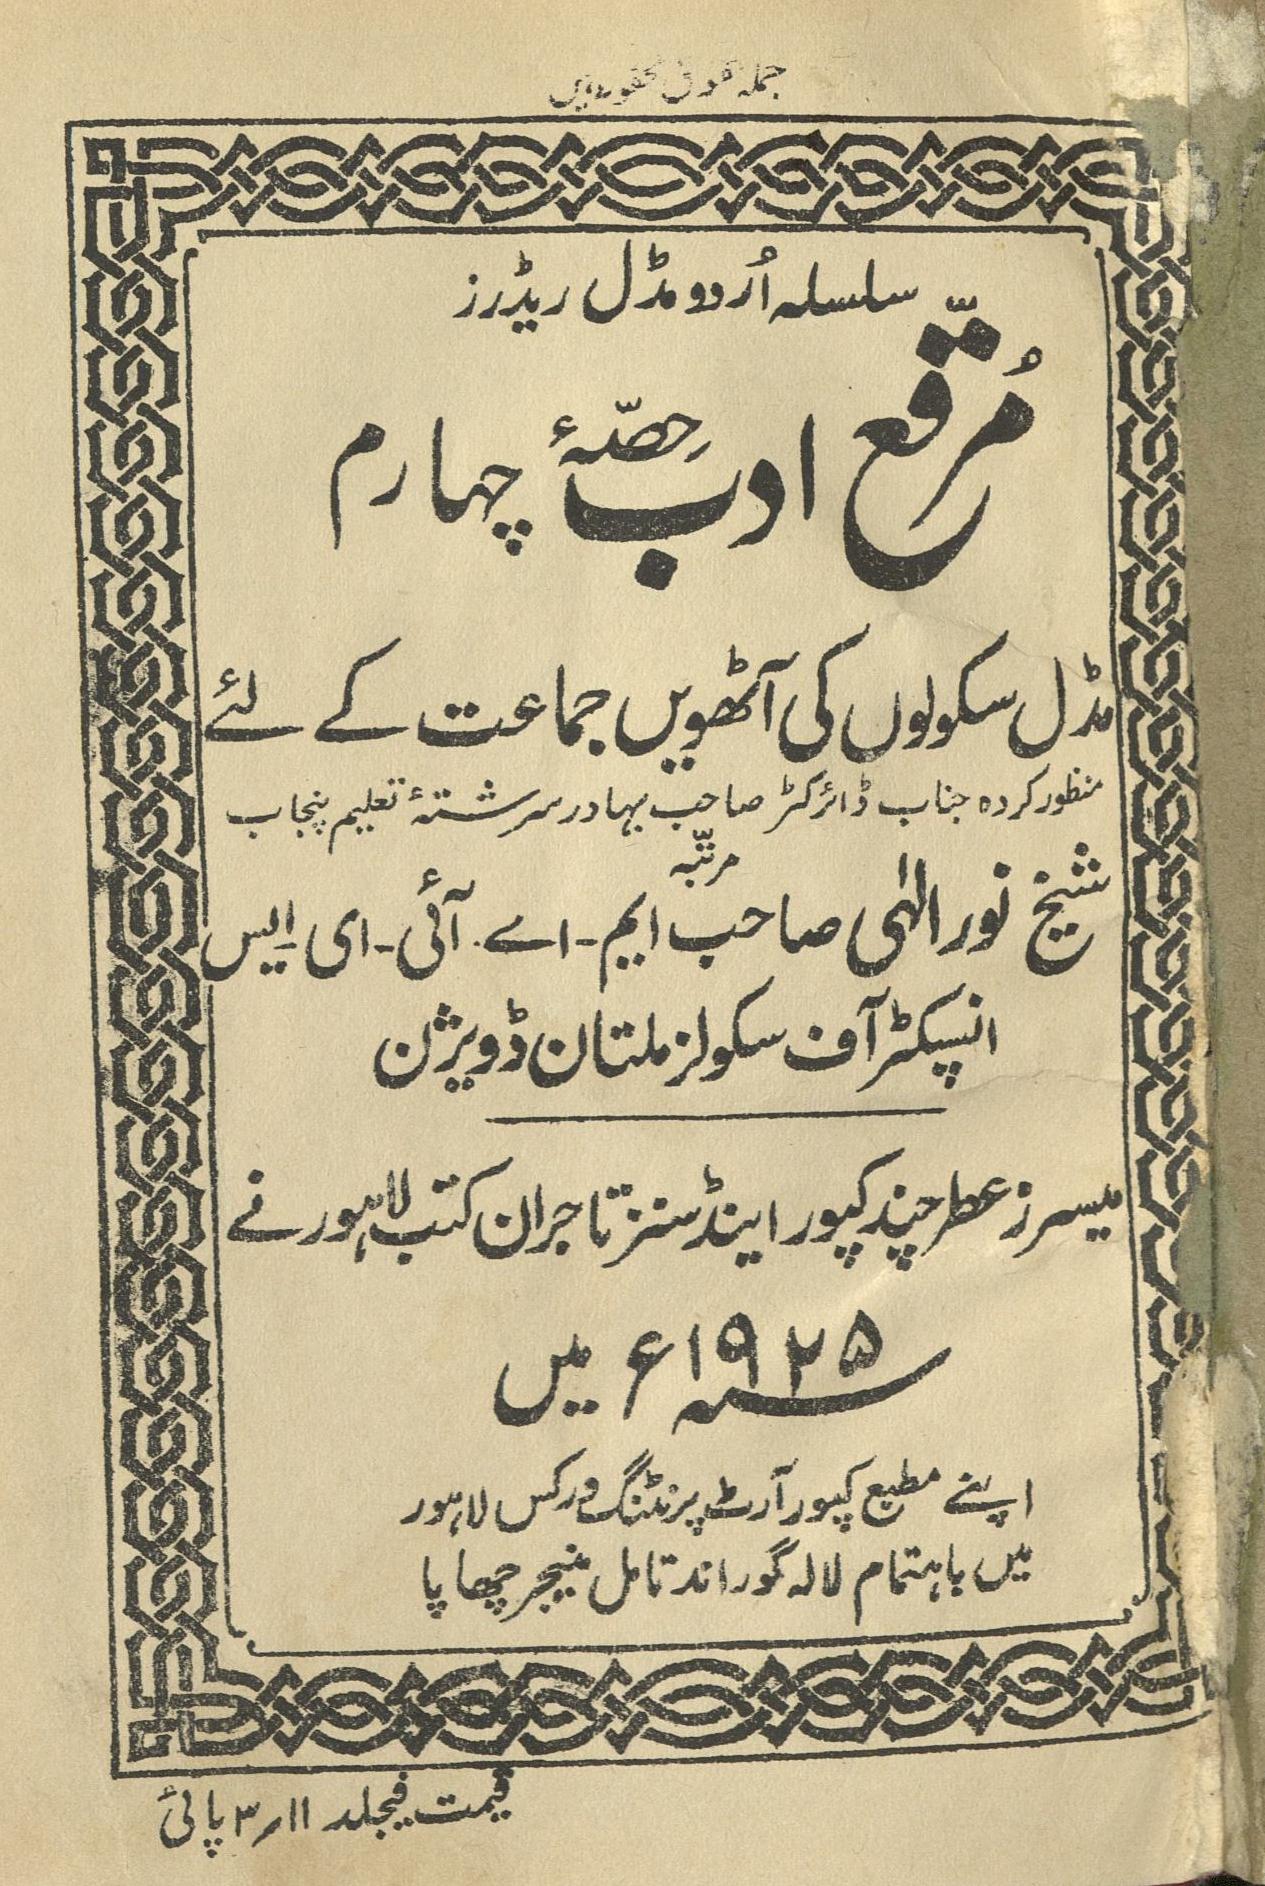 جملہ حقوق محفوظ ہیں
سلسلہ اُردو مڈل ریڈرز
مُرقّع ادب حصّۂ چہارم
مڈل سکولوں کی آٹھویں جماعت کے لئے
منظور کردہ جناب ڈائرکٹر صاحب بہادر سررشتۂ تعلیم پنجاب
مرتّبہ
شیخ نور الٰہی صاحب ایم-اے-آئی-ای-ایس
انسپکٹر آف سکولز ملتان ڈویژن
میسرز عطر چند کپور اینڈ سنز تاجران کتب لاہور نے
سنہ ۱۹۲۵ء میں
اپنے مطبع کپور آرٹ پرنٹنگ ورکس لاہور
میں باہتمام لالہ گوراندتامل منیجر چھاپا
قیمت فیجلد ۱۱ر ۳ پائی